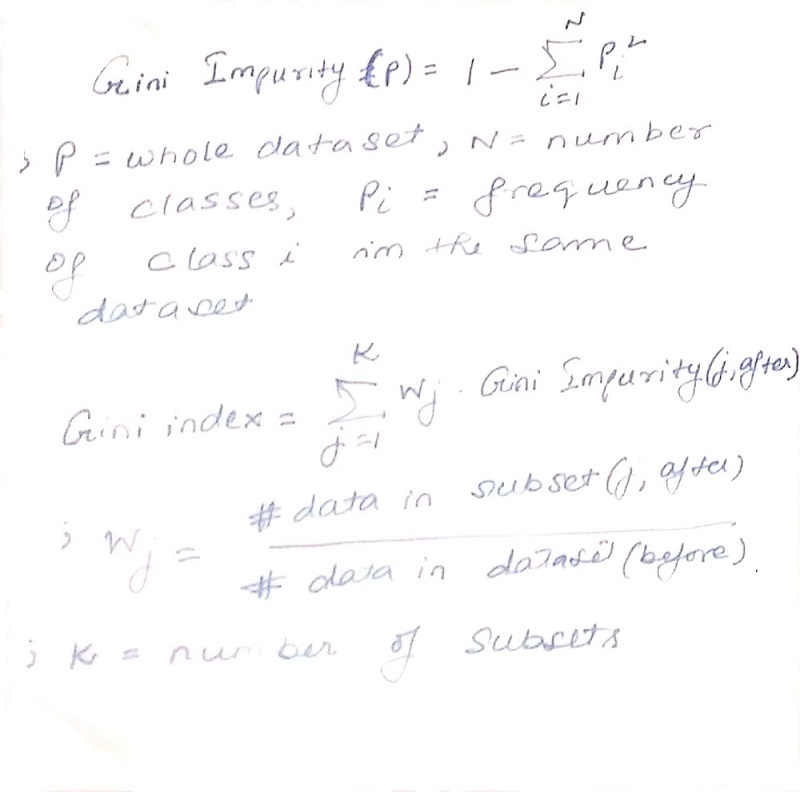 Gini Impurity (P) = 1 - \sum_{i=1}^{N} P_i^2
; P = whole dataset, N = number
of classes, Pi = frequency
of class i in the same
dataset
Gini index = \sum_{j=1}^{K} W_j . Gini Impurity (j, after)
; W_j = # data in subset (j, after)
# data in dataset (before).
; K = number of subsets